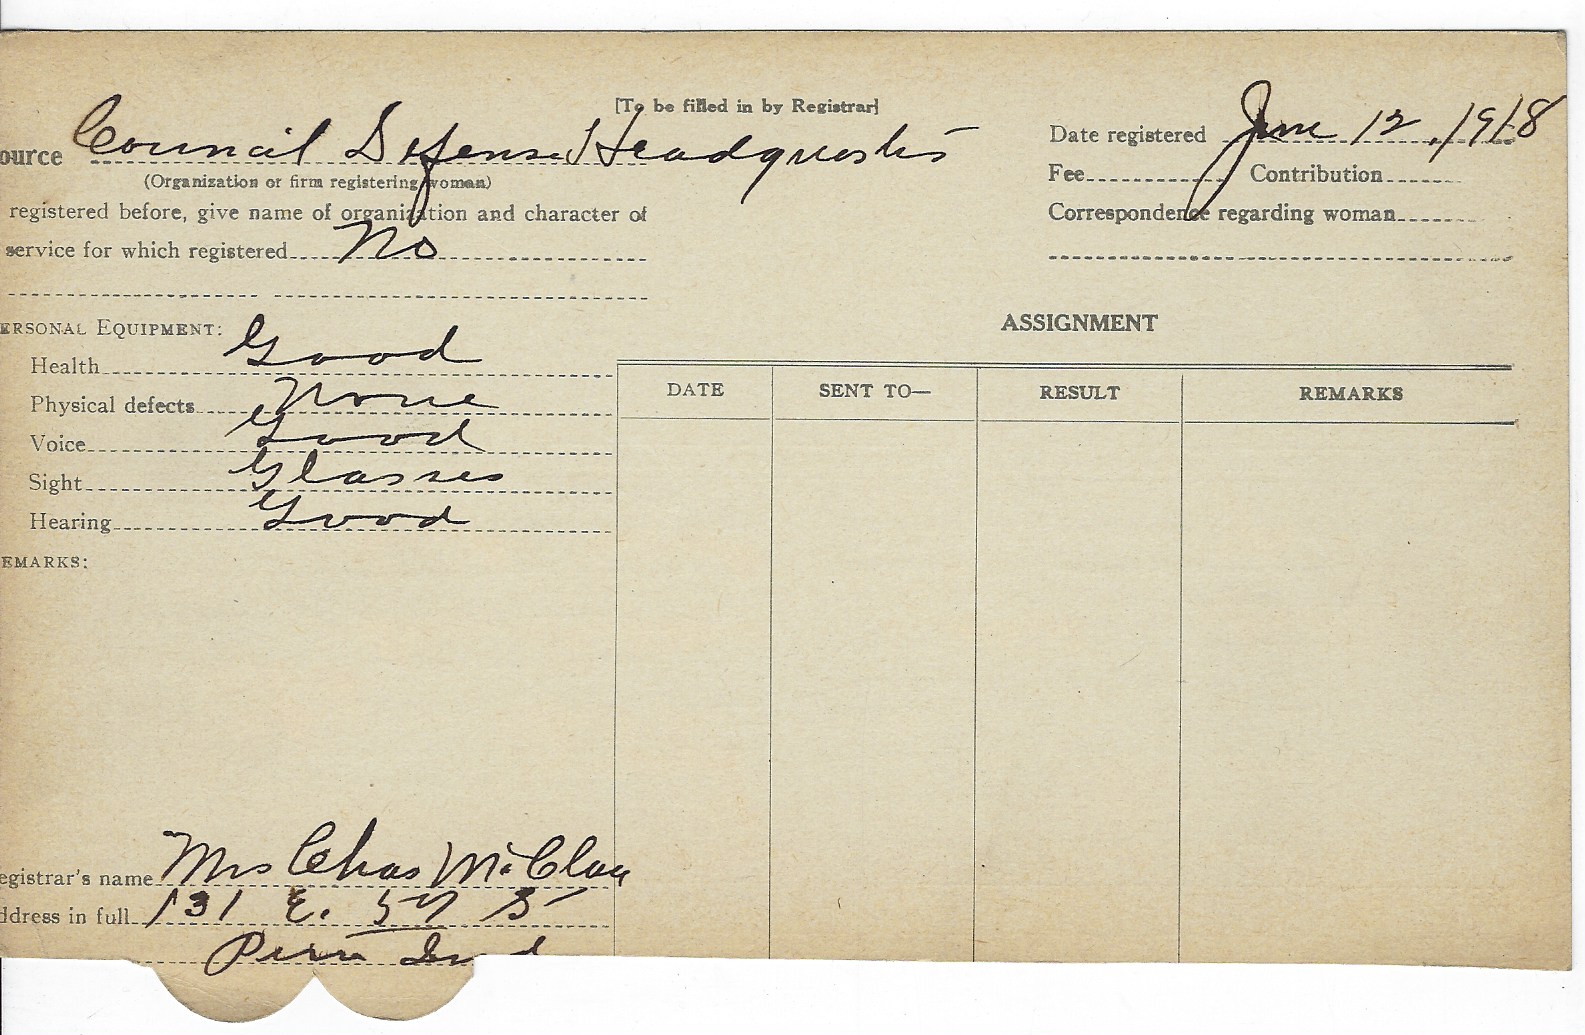 [To be filled in by Registrar]
ource Council Defense Headquarters
(Organization or firm registering woman)
registered before, give name of organization and character of
service for which registered No
Date registered June 12, 1918
Fee Contribution
Correspondence regarding woman
ERSONAL EQUIPMENT:
Health Good
Physical defects None
Voice Good
Sight Glasses
Hearing Good
EMARKS:
ASSIGNMENT
DATE SENT TO— RESULT REMARKS
egistrar's name Mrs Chas
ddress in full 131 E. 5th S
Peru Ind